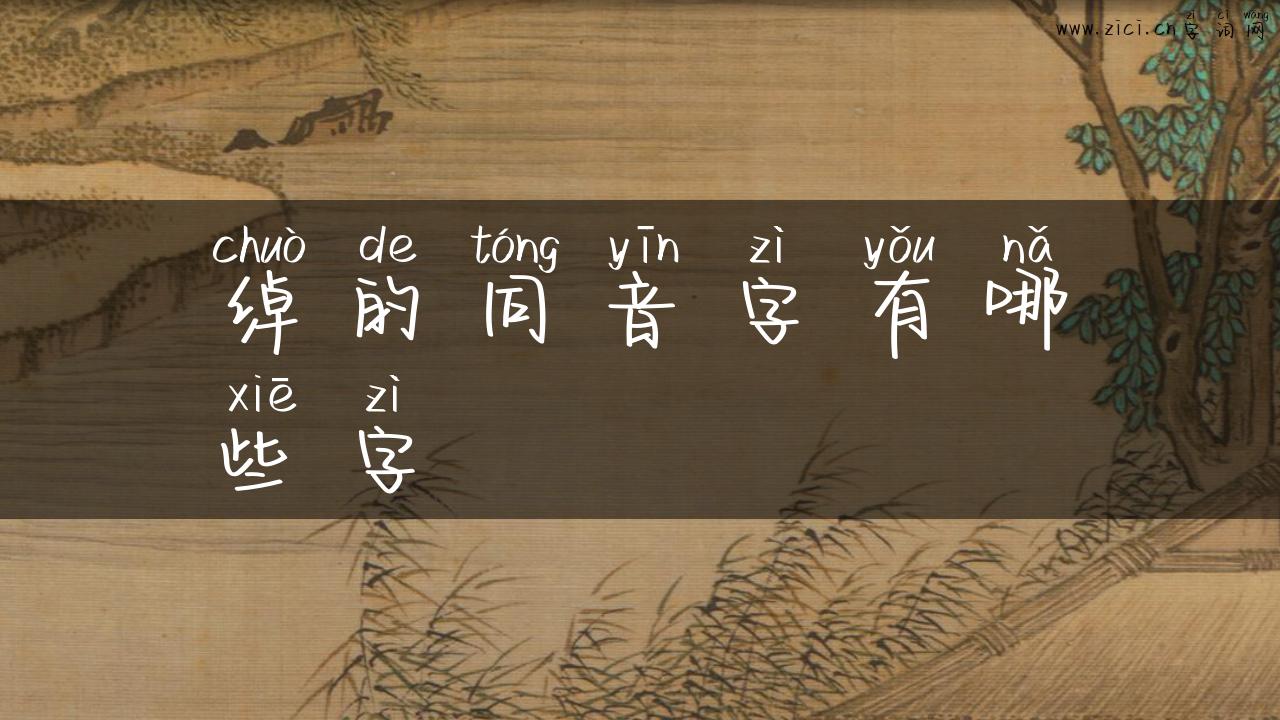 zì cí wǎng
www.zici.cn字词网
chuò de tóng yīn zì yǒu nǎ
绰的同音字有哪
xiē zì
些字